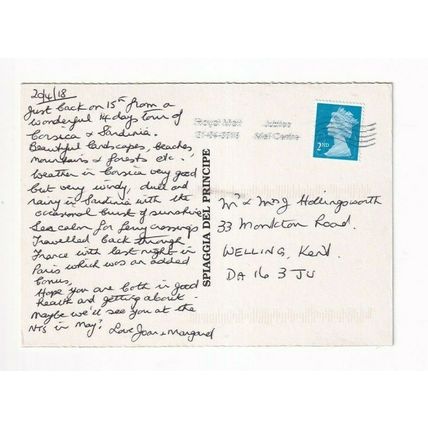 20/4/18
Just back on 15th from a
wonderful 14 day tour of
Corsica & Sardinia.
Beautiful landscapes, beaches
mountains & forests etc.
Weather in Corsica very good
but very windy, dull and
rainy in Sardinia with the
occasional burst of sunshine
Sea calm for ferry crossings
Travelled back through
France with last night in
Paris which was an added
bonus.
Hope you are both in good
health and getting about -
maybe we'll see you at the
NTS in May? Love Joan & Margaret
SPIAGGIA DEL PRINCIPE
Royal Mail
Jubilee
Mail Centre
2ND
Mr & Mrs J Hollingsworth
33 Monkton Road.
WELLING, Kent.
DA16 3JU